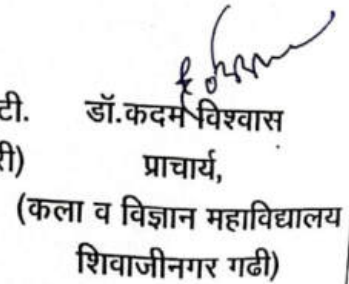 टी. डॉ.कदम विश्वास
री) प्राचार्य,
(कला व विज्ञान महाविद्यालय
शिवाजीनगर गढी)